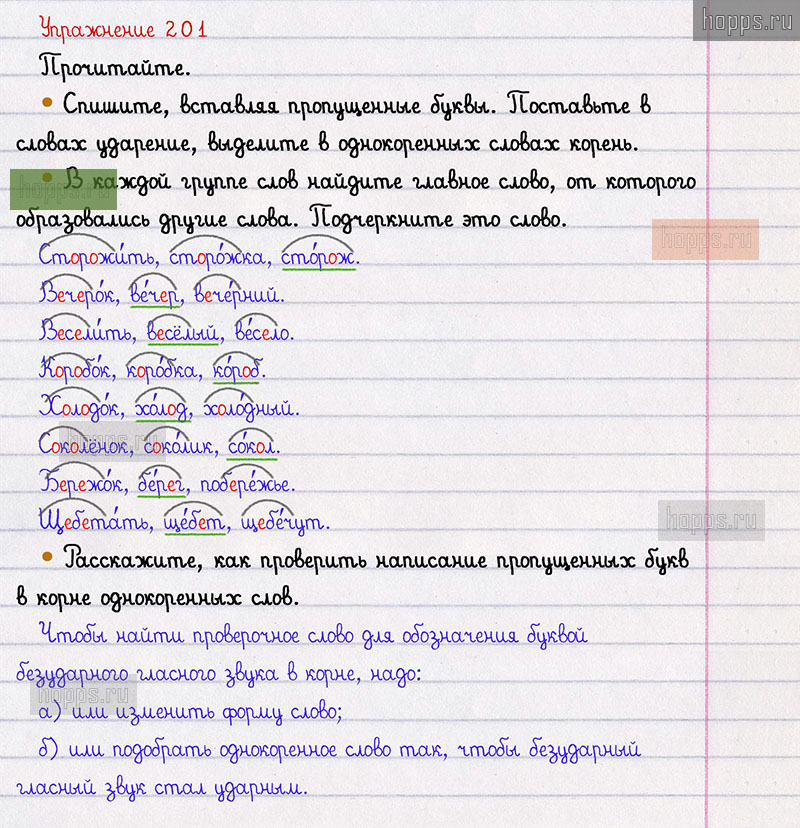 Упражнение 201
hopps.ru
Прочитайте.
• Спишите, вставляя пропущенные буквы. Поставьте в
словах ударение, выделите в однокоренных словах корень.
• В каждой группе слов найдите главное слово, от которого
hopps.ru
образовались другие слова. Подчеркните это слово.
hopps.ru
Сторожи́ть, сторо́жка, сто́рож.
Вечеро́к, ве́чер, вече́рний.
Весели́ть, весёлый, ве́село.
Коробо́к, коро́бка, ко́роб.
Холодо́к, хо́лод, холо́дный.
Соколёнок, соко́лик, со́кол.
hopps.ru
Бережо́к, бе́рег, побере́жье.
Щебета́ть, ще́бет, щебе́чут.
hopps.ru
• Расскажите, как проверить написание пропущенных букв
в корне однокоренных слов.
Чтобы найти проверочное слово для обозначения буквой
безударного гласного звука в корне, надо:
hopps.ru
а) или изменить форму слово;
б) или подобрать однокоренное слово так, чтобы безударный
гласный звук стал ударным.